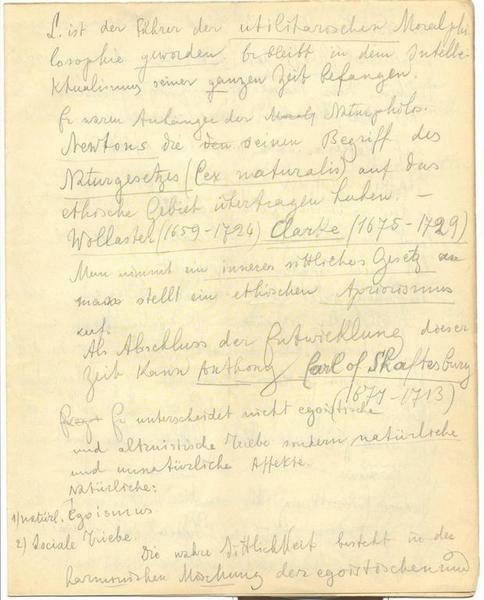 L. ist der Führer der utilitarischen Moralphi
losophie geworden. Er bleibt in dem Intelle-
ktualismus seiner ganzen Zeit befangen.
Es waren Anhänger der Naturphilos.
Newtons die den seinen Begriff des
Naturgesetzes (Lex naturalis) auf das
ethische Gebiet übertragen haben. –
Wollaston (1659-1724) Clarke (1675-1729)
Man nimmt ein inneres sittliches Gesetz an
man stellt ein ethischen Apriorismus
auf.
Als Abschluss der Entwicklung dieser
Zeit kann Anthony Earl of Shaftesbury
(1671-1713)
Er unterscheidet nicht egoistische
und altruistische Triebe sondern natürliche
und unnatürliche Affekte.
Natürliche:
1) natürl. Egoismus
2) Sociale Triebe.
Die wahre Sittlichkeit besteht in der
harmonischen Mischung der egoistischen und